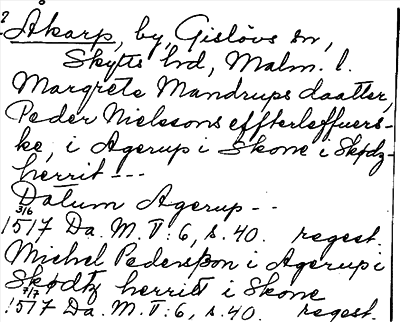 Åkarp, by, Gislövs sn,
Skytts hd, Malm. l.
Margrete Mandrups daatter,
Peder Nielssons effterleffuers-
ke, i Agerup i Skone i Skødz-
herrit ---
Datum Agerup --
3/6
1517 Da. M. T: 6, s. 40. regest.
Michel Pedersson i Agerup i
Skødtz herritt i Skone
7/7
1517 Da. M. T: 6, s. 40. regest.